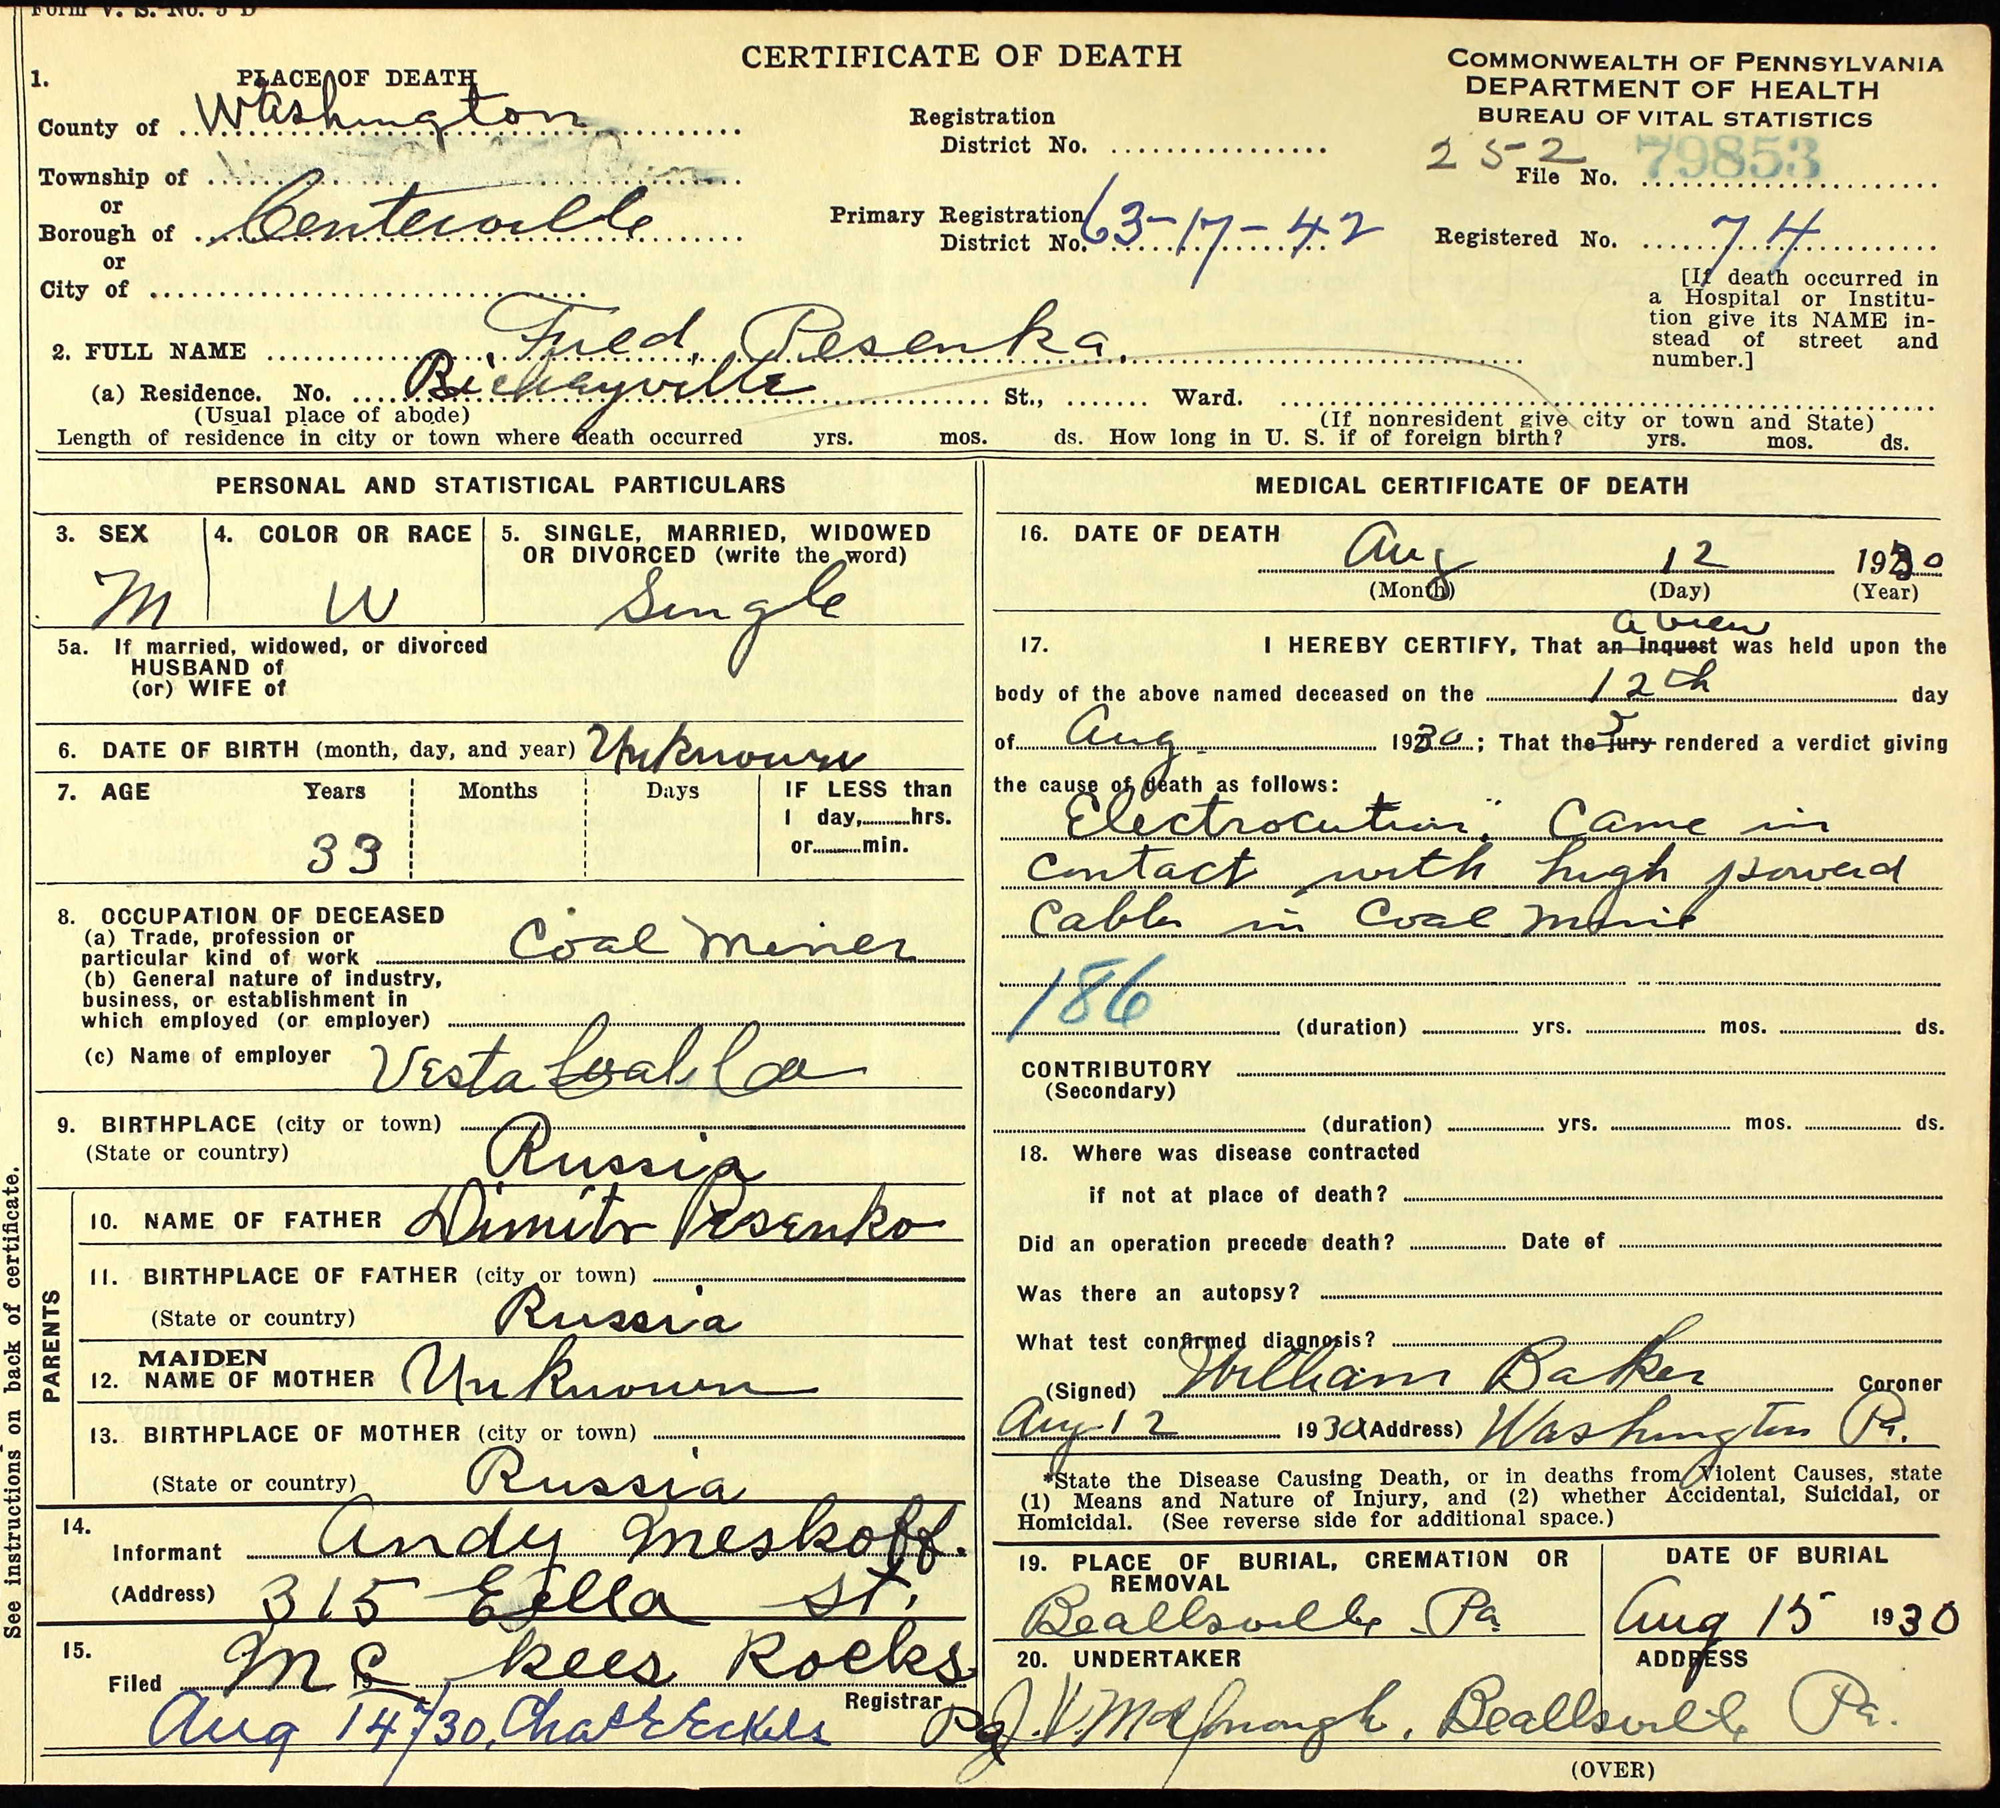 Form V. S. No. 5 D
CERTIFICATE OF DEATH
COMMONWEALTH OF PENNSYLVANIA
DEPARTMENT OF HEALTH
BUREAU OF VITAL STATISTICS
1. PLACE OF DEATH
County of Washington
Registration District No.
252 File No. 79853
Township of
or
Borough of Centerville
Primary Registration District No. 63-17-42
Registered No. 74
or
City of
[If death occurred in
a Hospital or Institu-
tion give its NAME in-
stead of street and
number.]
2. FULL NAME Fred Pesenka.
(a) Residence. No. Richeyville St., Ward.
(Usual place of abode) (If nonresident give city or town and State)
Length of residence in city or town where death occurred yrs. mos. ds. How long in U. S. if of foreign birth? yrs. mos. ds.
PERSONAL AND STATISTICAL PARTICULARS
3. SEX 4. COLOR OR RACE 5. SINGLE, MARRIED, WIDOWED
OR DIVORCED (write the word)
M W Single
5a. If married, widowed, or divorced
HUSBAND of
(or) WIFE of
6. DATE OF BIRTH (month, day, and year) Unknown
7. AGE Years Months Days IF LESS than
1 day, hrs.
33 or min.
8. OCCUPATION OF DECEASED
(a) Trade, profession or
particular kind of work Coal Miner
(b) General nature of industry,
business, or establishment in
which employed (or employer)
(c) Name of employer Vesta Coal Co
9. BIRTHPLACE (city or town)
(State or country) Russia
PARENTS
10. NAME OF FATHER Dimitr Pesenko
11. BIRTHPLACE OF FATHER (city or town)
(State or country) Russia
12. MAIDEN NAME OF MOTHER Unknown
13. BIRTHPLACE OF MOTHER (city or town)
(State or country) Russia
14.
Informant Andy Meskoff.
(Address) 315 Ella St.
15. Mc Kees Rocks Pa
Filed 19 Registrar
Aug 14/30, Chas E Eckels
See instructions on back of certificate.
MEDICAL CERTIFICATE OF DEATH
16. DATE OF DEATH Aug 12 1930
(Month) (Day) (Year)
a view
17. I HEREBY CERTIFY, That an inquest was held upon the
body of the above named deceased on the 12th day
of Aug 1930; That the jury rendered a verdict giving
the cause of death as follows:
Electrocution; Came in
contact with high powerd
cable in coal mine
186 (duration) yrs. mos. ds.
CONTRIBUTORY
(Secondary)
(duration) yrs. mos. ds.
18. Where was disease contracted
if not at place of death?
Did an operation precede death? Date of
Was there an autopsy?
What test confirmed diagnosis?
(Signed) William Baker Coroner
Aug 12 1930 (Address) Washington Pa.
*State the Disease Causing Death, or in deaths from Violent Causes, state
(1) Means and Nature of Injury, and (2) whether Accidental, Suicidal, or
Homicidal. (See reverse side for additional space.)
19. PLACE OF BURIAL, CREMATION OR
REMOVAL
DATE OF BURIAL
Beallsville Pa Aug 15 1930
20. UNDERTAKER ADDRESS
J. V. McDonough, Beallsville Pa.
(OVER)